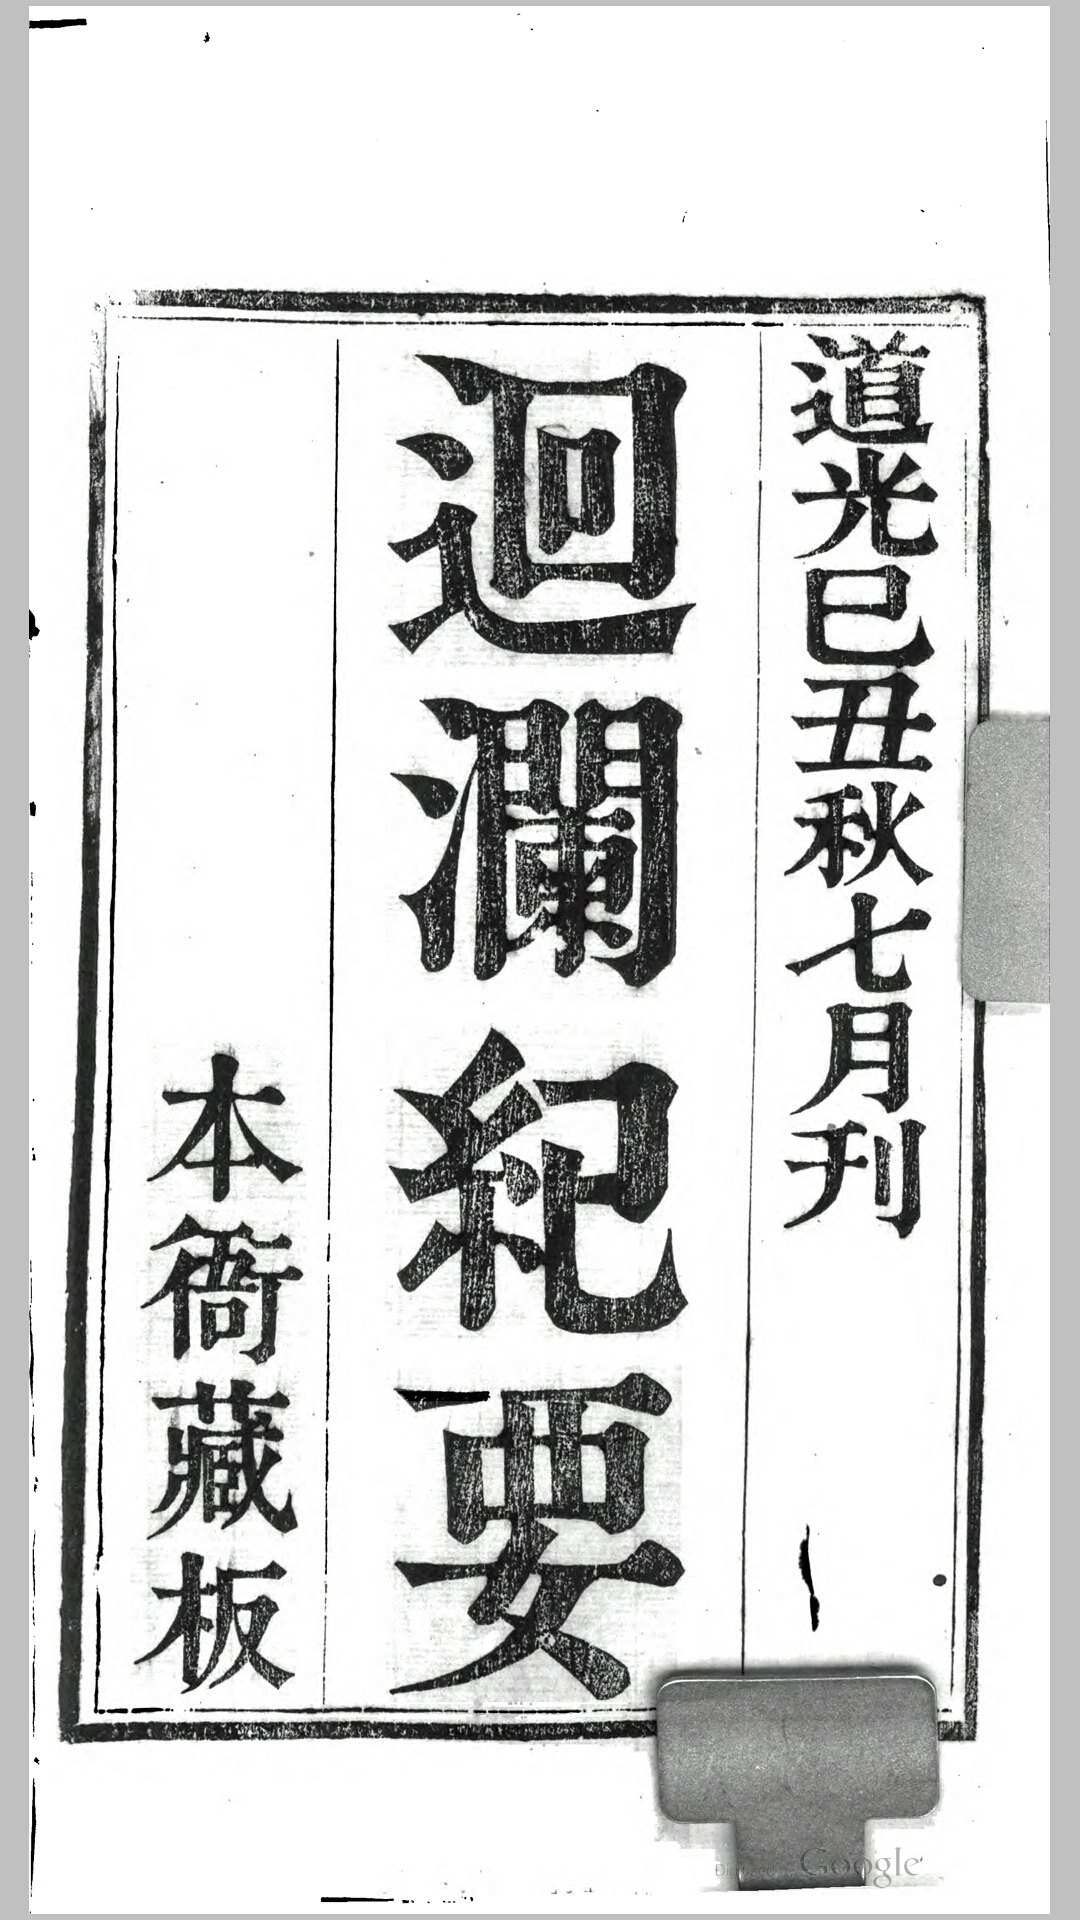 道光巳丑秋七月刊
迴瀾紀要
本衙藏板
Google